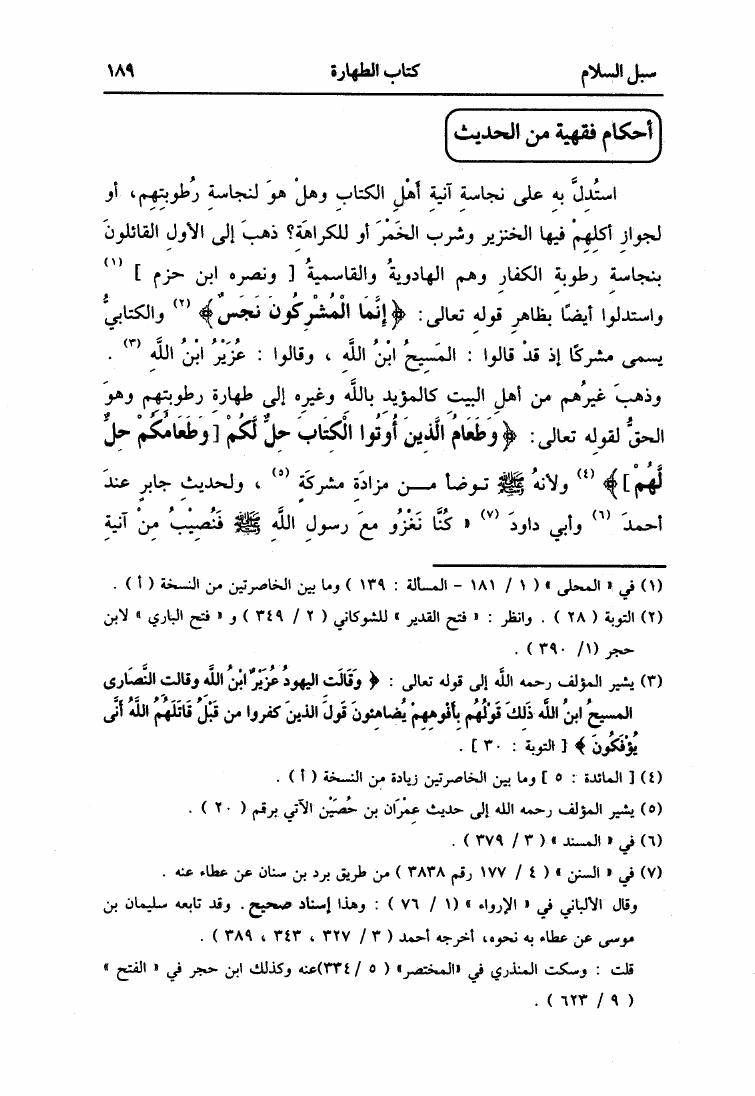 سبل السلام كتاب الطهارة ١٨٩
أحكام فقهية من الحديث
استُدلَّ به على نجاسةِ آنيةِ أَهْلِ الكتابِ وهلْ هوَ لنجاسةِ رُطوبتِهِم، أو
لجوازِ أكلِهِمْ فيها الخنزير وشرب الخَمْرَ أو للكراهَة؟ ذهبَ إلى الأول القائلونَ
بنجاسة رطوبة الكفارِ وهم الهادويةُ والقاسميةُ [ ونصره ابن حزم ] (١)
واستدلوا أيضًا بظاهرِ قوله تعالى: ﴿إِنَّمَا الْمُشْرِكُونَ نَجَسٌ﴾ (٢) والكتابيُّ
يسمى مشركًا إذ قدْ قالوا : المَسيحُ ابْنُ اللَّه ، وقالوا : عُزَيْرُ ابْنُ اللَّه (٣) .
وذهبَ غيرُهم من أهلِ البيتِ كالمؤيد باللَّه وغيره إلى طهارةِ رطوبتِهم وهوَ
الحقُّ لقوله تعالى: ﴿وَطَعَامُ الَّذِينَ أُوتُوا الْكتَابَ حلٌّ لَّكُمْ [وَطَعَامُكُمْ حلٌّ
لَّهُمْ]﴾ (٤) ولأنهُ ﷺ توضأ مــن مزادَةِ مشركَةٍ (٥) ، ولحديثِ جابرٍ عندَ
أحمدَ (٦) وأبي داودَ (٧) « كُنَّا نَغْزُو معَ رسولِ اللَّهِ ﷺ فَنُصِيْبُ مِنْ آنيةِ
(١) في « المحلى » ( ١ / ١٨١ - المسألة : ١٣٩ ) وما بين الخاصرتين من النسخة ( أ ) .
(٢) التوبة ( ٢٨ ) . وانظر : « فتح القدير » للشوكاني ( ٢ / ٣٤٩ ) و « فتح الباري » لابن
حجر (١/ ٣٩٠ ) .
(٣) يشير المؤلف رحمه اللَّه إلى قوله تعالى : ﴿ وَقَالَت اليهودُ عُزَيْرٌ ابْنُ اللَّه وقالت النَّصارى
المسيحُ ابنُ اللَّه ذَلكَ قَوْلُهُم بِأَفْوهِهِمْ يُضَاهِئونَ قَولَ الذينَ كفروا من قَبْلُ قَاتَلَهُمُ اللَّهُ أنَّى
يُؤْفَكُونَ ﴾ [ التوبة : ٣٠ ] .
(٤) [ المائدة : ٥ ] وما بين الخاصرتين زيادة من النسخة ( أ ) .
(٥) يشير المؤلف رحمه الله إلى حديث عِمْرَان بن حُصَيْن الآتي برقم ( ٢٠ ) .
(٦) في « المسند » ( ٣ / ٣٧٩ ) .
(٧) في « السنن » ( ٤ / ١٧٧ رقم ٣٨٣٨ ) من طريق برد بن سنان عن عطاء عنه .
وقال الألباني في « الإرواء » (١ / ٧٦ ) : وهذا إسناد صحيح. وقد تابعه سليمان بن
موسى عن عطاء به نحوه، أخرجه أحمد ( ٣ / ٣٢٧ ، ٣٤٣ ، ٣٨٩ ) .
قلت : وسكت المنذري في «المختصر» ( ٥ / ٣٣٤)عنه وكذلك ابن حجر في « الفتح »
( ٩ / ٦٢٣ ) .